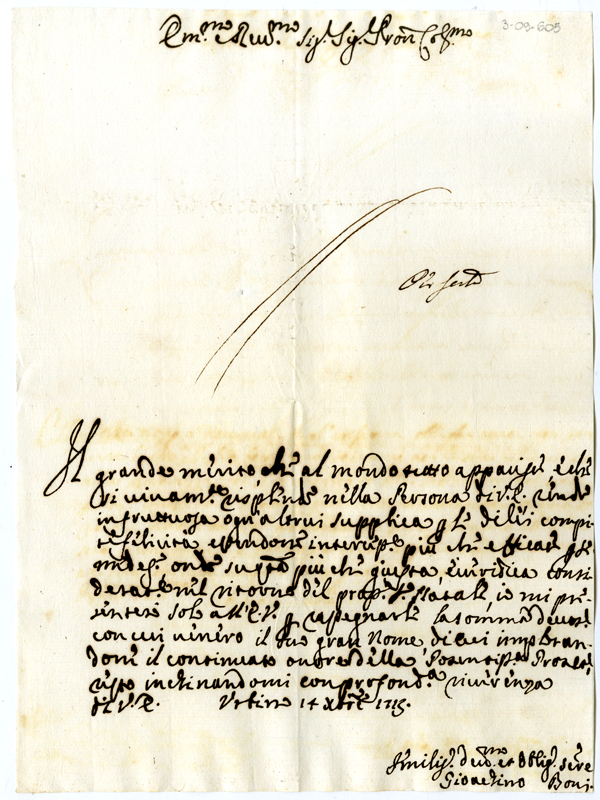 3-09-605
Em.mo e Rev.mo Sig.r Sig.r Pron Col.mo
Il
grande merito che al mondo tutto appariscie, e che
si vivam.te risplende nella Persona di V.E. rende
infruttuosa ogn'altrui supplica p le di lei compi-
te felicità, essendone interp. più che efficace p se
mede.o onde sup.to più che giusta, e veridica consi-
derat.e nel ritorno del pros.o S. Natale, io mi pre-
senterò solo all'E.V. p rassegnarle la somma devot.e
con cui venero il suo gran Nome, di cui implorran-
domi il continuato onore della Protet.
resto inchinandomi con profond.a riverenza
di V.E. Urbino 14 Xbre 1715.
Umiliss. dev.mo et Obblig. serv.re
Gioachino Boni.